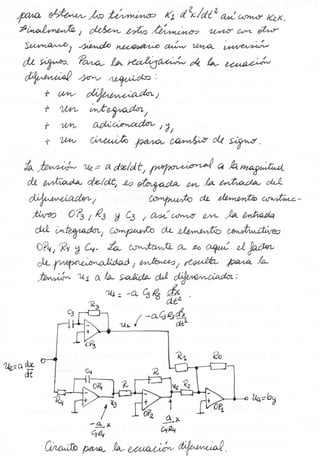 para obtener los términos K₁ d²x/dt² así como K₂x.
Finalmente, deben estos términos uno con otro
sumarse, siendo necesario aún una inversión
de signos. Para la realización de la ecuación
diferencial son requeridos:
+ un diferenciador,
+ un integrador,
+ un adicionador, y,
+ un circuito para cambio de signo.
La tensión ue = a dx/dt, proporcional a la magnitud
de entrada dx/dt, es otorgada en la entrada del
diferenciador, compuesto de elementos construc-
tivos OP3, R3 y C3, así como en la entrada
del integrador, compuesto de elementos constructivos
OP4, R4 y C4. La constante a es aquí el factor
de proporcionalidad, entonces, resulta para la
tensión u1 a la salida del diferenciador:
u1 = -a C3 R3 d²x/dt²
R3
C3
OP3
u1
-a C3 R3 d²x/dt²
ue = a dx/dt
R1
R0
C4
R4
OP4
R
R
u3
OP2
u2
R2
OP1
ua = by
-a/C4R4 x
a/C4R4 x
Circuito para la ecuación diferencial.